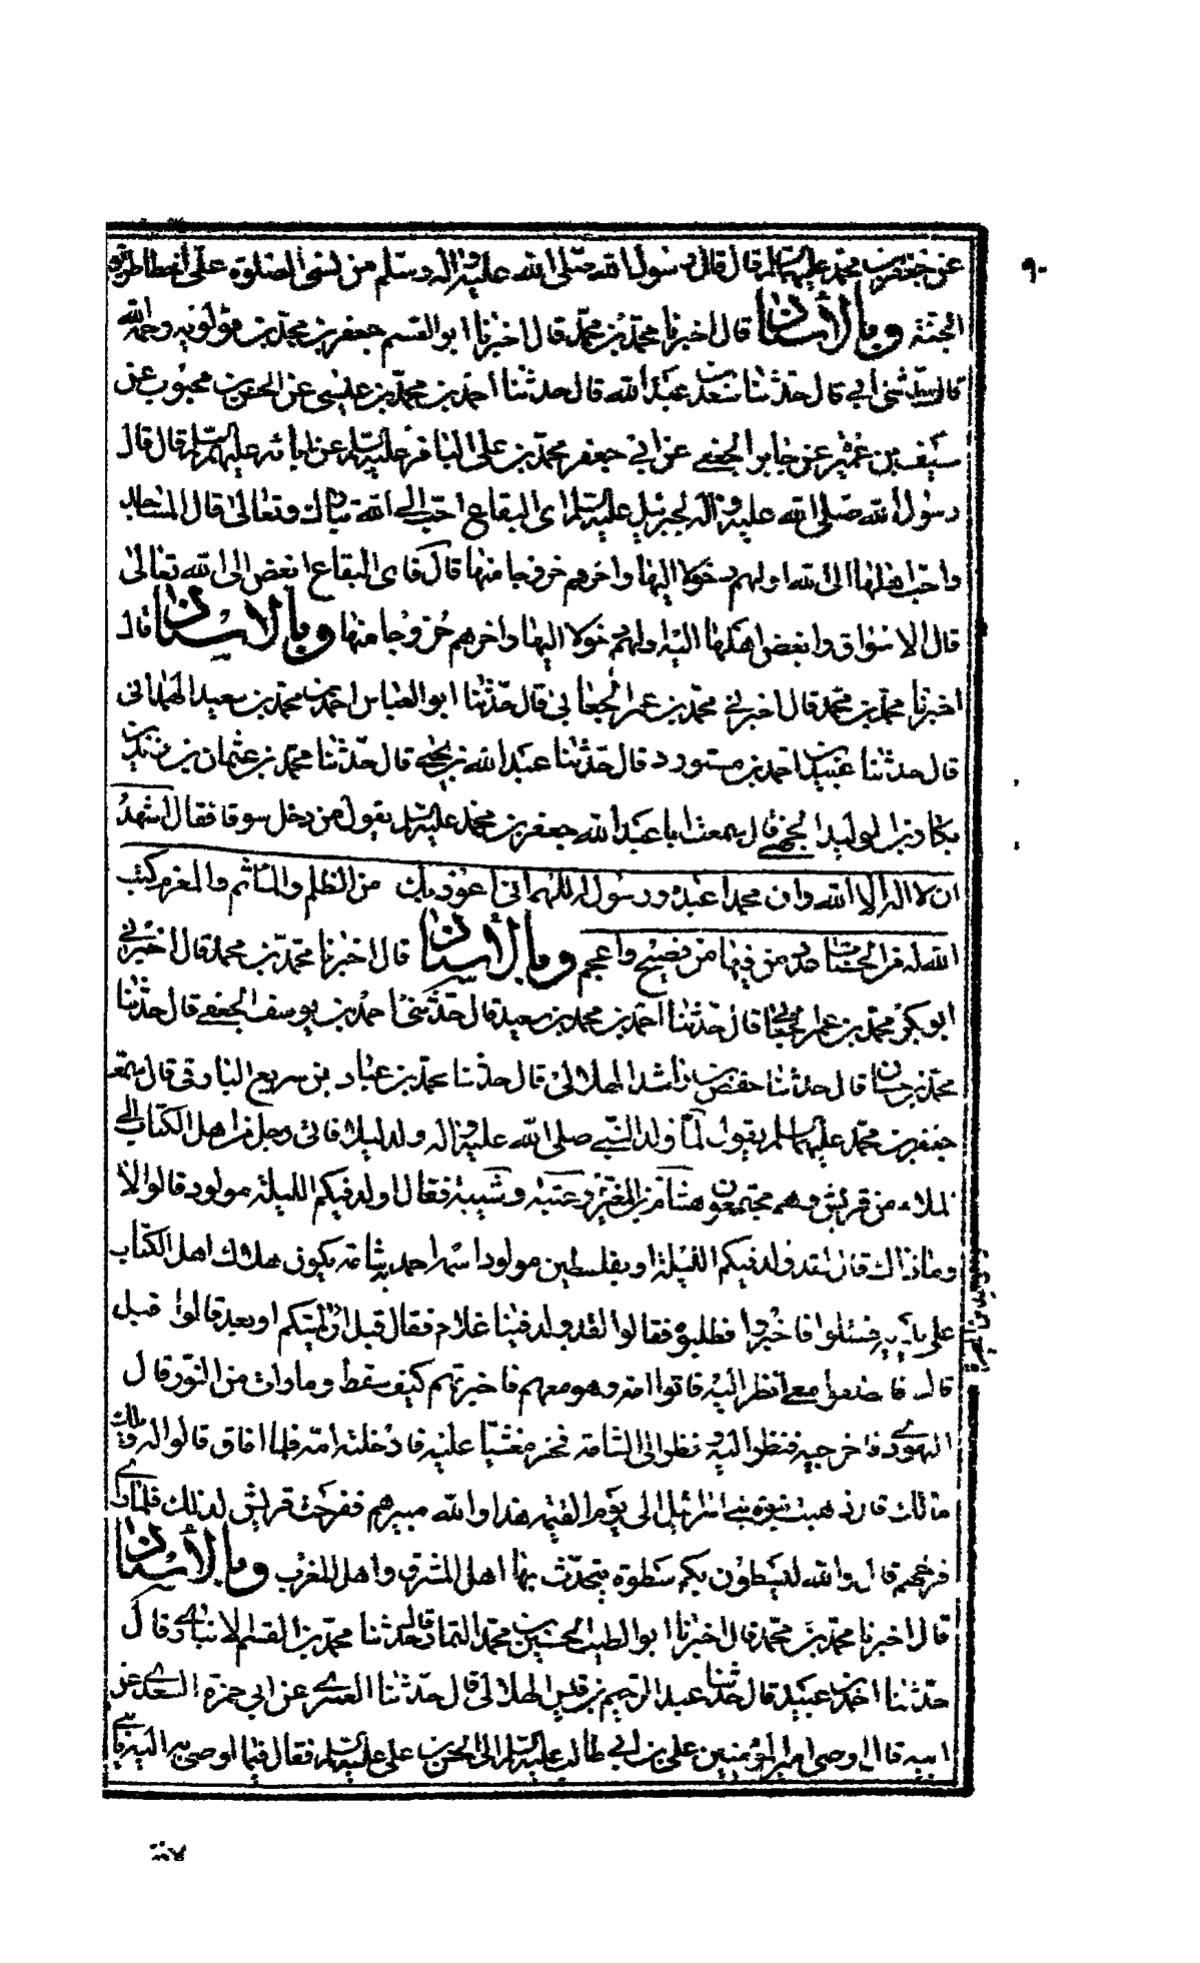 ٩٠
عن جعفر بن محمد عليهما السلم قال قال رسول الله صلى الله عليه واله وسلم من نسى الصلوة على اخطا طريق
الجنة وبالاسناد قال اخبرنا محمد بن محمد قال اخبرنا ابو القسم جعفر بن محمد بن قولويه رحمه الله
قال حدثنى ابي قال حدثنا سعد بن عبد الله قال حدثنا احمد بن محمد بن عيسى عن الحسن بن محبوب عن
سيف بن عميرة عن جابر الجعفي عن ابي جعفر محمد بن على الباقر عليه السلم عن ابائه عليهم السلم قال قال
رسول الله صلى الله عليه واله لجبرئيل عليه السلم اى البقاع احب الى الله تبارك وتعالى قال المساجد
واحب اهلها الى الله اولهم دخولا اليها واخرهم خروجا منها قال فاى البقاع ابغض الى الله تعالى
قال الاسواق وابغض اهلها اليه اولهم دخولا اليها واخرهم خروجا منها وبالاسناد قال
اخبرنا محمد بن محمد قال اخبرني محمد بن عمر الجعابي قال حدثنا ابو العباس احمد بن محمد بن سعيد الهمدانى
قال حدثنا عبيد بن احمد بن مستورد قال حدثنا عبد الله بن يحيى قال حدثنا محمد بن عثمان بن زيد بن
بكار بن الوليد الجهنى قال سمعت ابا عبد الله جعفر بن محمد عليه السلم يقول من دخل سوقا فقال اشهد
ان لا اله الا الله وان محمدا عبده ورسوله اللهم انى اعوذ بك من الظلم والماثم والمغرم كتب
الله له من الحسنات عدد من فيها من فصيح واعجم وبالاسناد قال اخبرنا محمد بن محمد قال اخبرني
ابو بكر محمد بن عمر الجعابي قال حدثنا احمد بن محمد بن سعيد قال حدثنى احمد بن يوسف الجعفي قال حدثنا
محمد بن حسان قال حدثنا حفص بن راشد الهلالى قال حدثنا محمد بن عباد بن سريع البارقى قال سمعت
جعفر بن محمد عليهما السلم يقول لما ولد النبي صلى الله عليه واله ولد ليلا فاتى رجل من اهل الكتاب الى
الملاء من قريش وهم مجتمعون هشام بن المغيرة وعتبة وشيبة فقال اولد فيكم الليلة مولود قالوا لا
وما ذاك قال لقد ولد فيكم الليلة او بفلسطين مولود اسمه احمد به شامة يكون هلاك اهل الكتاب
على يديه فسئلوا فاخبروا فطلبوه فقالوا لقد ولد فينا غلام فقال قبل ان اتيتكم او بعد قالوا قبل
قال فانطلقوا معى انظر اليه فاتوا امه وهو معهم فاخبرتهم كيف سقط وما رات من النور قال
اليهودي فاخرجيه فنظر اليه ونظر الى الشامة فخر مغشيا عليه فادخلته امه فلما افاق قالوا له ويلك
مالك قال ذهبت نبوة بني اسرائيل الى يوم القيمة هذا والله مبيرهم ففرحت قريش لذلك فلما راى
فرحهم قال والله ليسطون بكم سطوة يتحدث بها اهل المشرق واهل المغرب وبالاسناد
قال اخبرنا محمد بن محمد قال اخبرنا ابو الطيب الحسين بن محمد التمار قال حدثنا محمد بن القسم الانباري قال
حدثنا احمد بن عبيد قال حدثنا عبد الرحيم بن قيس الهلالى قال حدثنا العمرى عن ابي حمزة السعدي عن
ابيه قال اوصى امير المؤمنين على بن ابي طالب عليه السلم الى الحسن بن على عليه السلم فقال فيما اوصى به اليه يا بني
لا فقر